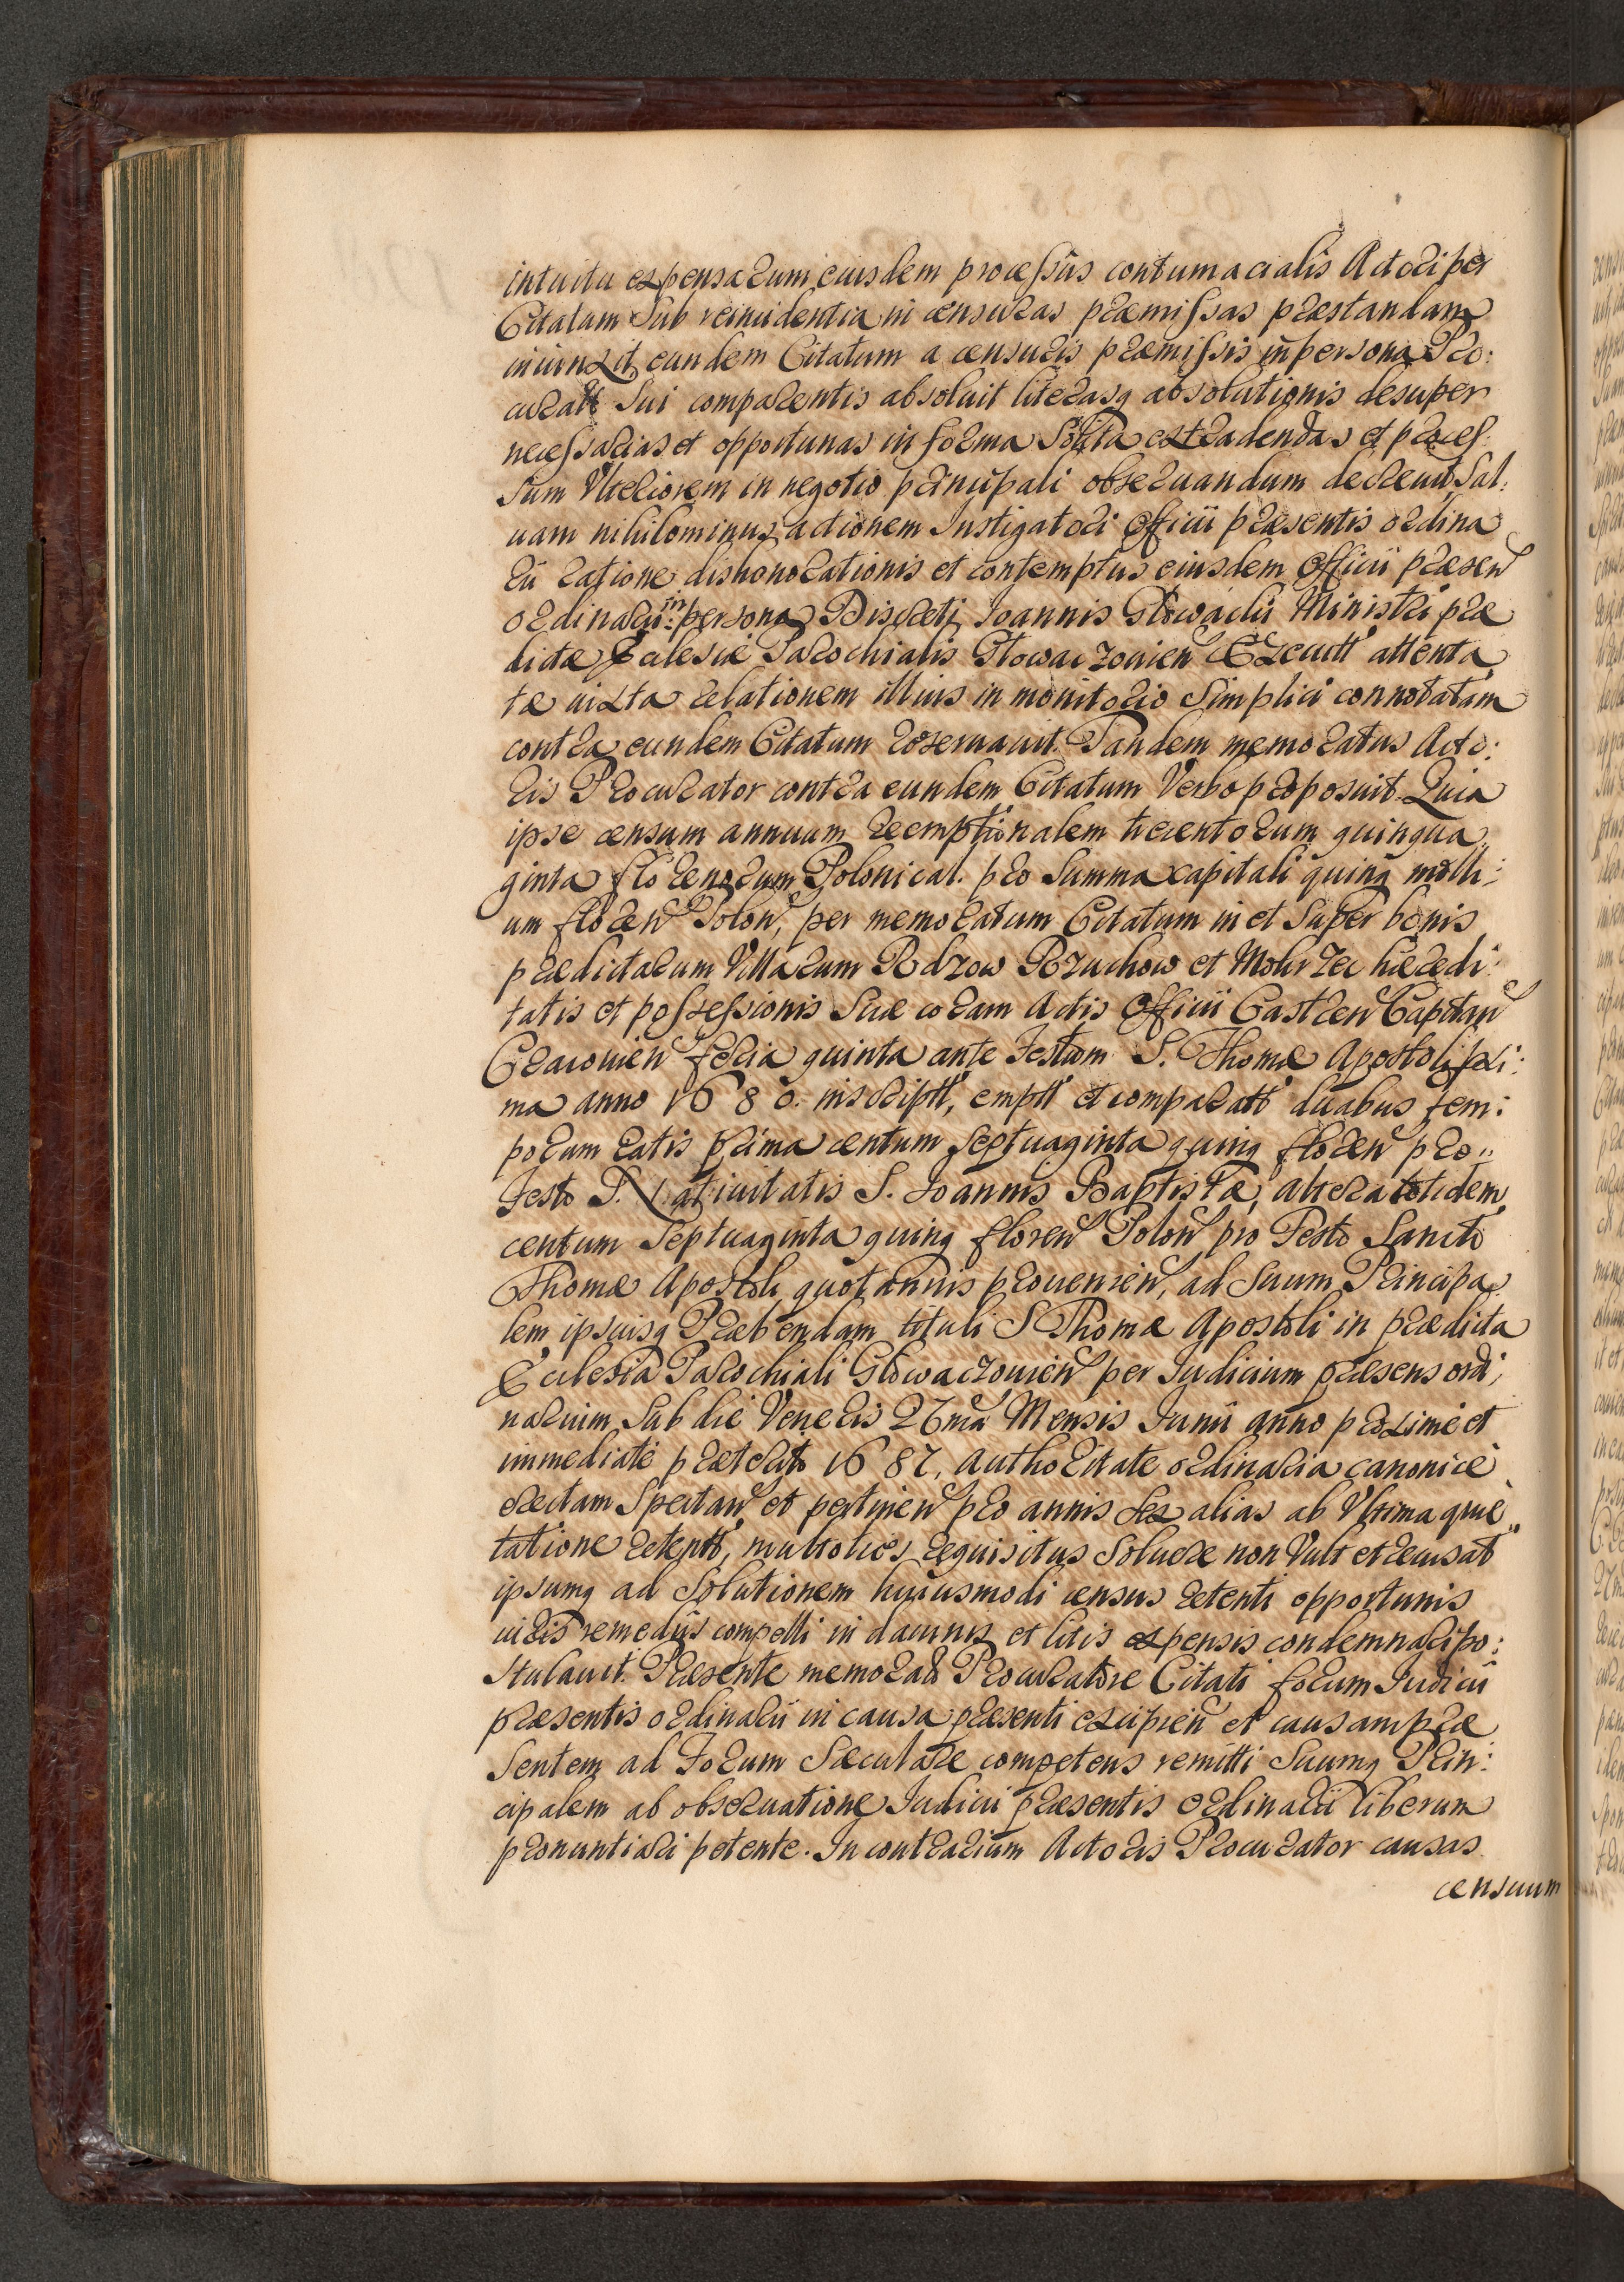 intuitu expensarum eiusdem processus contumacialis Actori per
Citatum Sub reincidentia in censuras præmissas præstandam
iniunxit, eundem Citatum a censuris præmissis in persona Pro:
curatt Sui comparentis absoluit literasq absolutionis desuper
necessarias et opportunas in forma Solita extradendas et proces:
sum Vlteriorem in negotio principali obseruandum decreuit, Sal:
uam nihilominus actionem Instigatori Officii præsentis ordina
rii ratione dishonorationis et contemptus eiusdem Officii præsen
ordinarii in persona Discreti Ioannis Glowacki Ministri præ
dictæ Ecclesiæ Parochialis Glowaczouien Executt attenta
tæ iuxta relationem illius in monitorio Simplici connotatam
contra eundem Citatum reseruauit. Tandem memoratus Acto:
ris Procurator contra eundem Citatum Verbo proposuit. Quia
ipse censum annuum reemptionalem trecentorum quinqua
ginta florenorum Polonical. pro Summa capitali quinq milli:
um floren Polon, per memoratum Citatum in et Super bonis
prædictarum Villarum Rdzow Rzuchow et Mokrzec hæredi:
tatis et possessionis Suæ coram Actis Officii Castren Capitan
Cracouien feria quinta ante Festum S. Thomæ Apostoli proxi:
ma anno 1680. inscriptt, emptt et comparatt duabus tem:
porum ratis prima centum Septuaginta quinq floren pro
Festo Natiuitatis S. Ioannis Baptistæ, altera totidem
centum Septuaginta quinq floren Polon pro Festo Sancti
Thomæ Apostoli quotannis prouenien, ad Suum Principa
lem ipsiusq Præbendam tituli S Thomæ Apostoli in prædicta
Ecclesia Parochiali Glowaczouien per Iudicium præsens ordi,
narium Sub die Veneris 27ma Mensis Iunii anno proxime et
immediate præterito 1687, Authoritate ordinaria canonice
erectam Spectan et pertinen pro annis Sex alias ab Vltima quie
tatione retentt, multoties requisitus Soluere non Vult et recusat
ipsumq ad Solutionem huiusmodi census retenti opportunis
iuris remediis compelli in damnis et litis expensis condemnari po:
stulauit. Præsente memorato Procuratore Citati forum Iudicii
præsentis ordinarii in causa præsenti excipien et causam præ
sentem ad Forum Sæculare competens remitti Suumq Prin:
cipalem ab obseruatione Iudicii præsentis Ordinarii liberum
pronuntiari petente. In contrarium Actoris Procurator causas
censuum